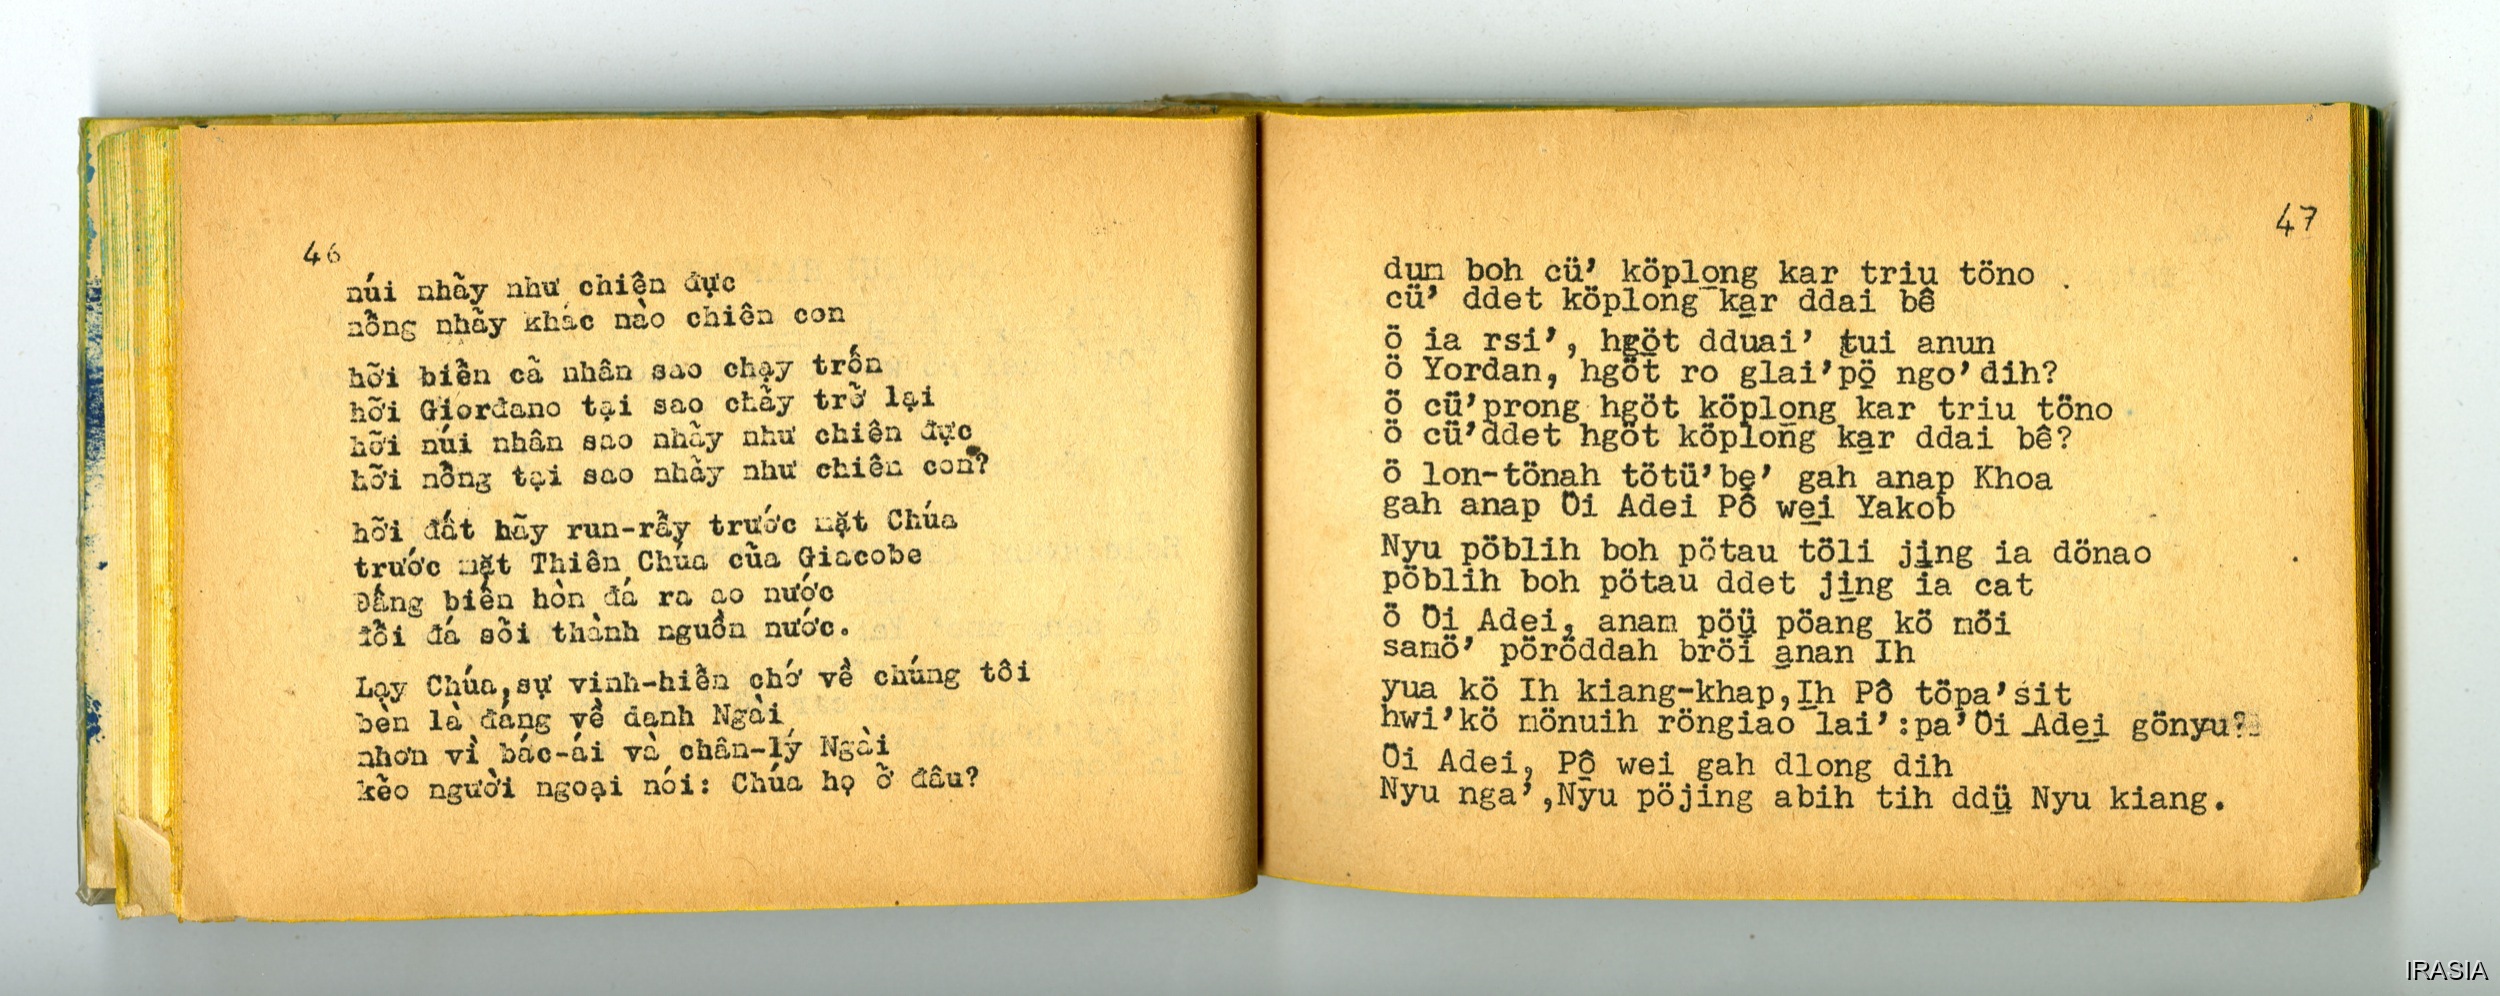 46
núi nhãy như chiên đực
nỗng nhãy khác nào chiên con
hỡi biển cã nhân sao chạy trốn
hỡi Giorđano tại sao chẫy trỡ lại
hỡi núi nhân sao nhãy như chiên đực
hỡi nỗng tại sao nhãy như chiên con?
hỡi đất hãy run-rẫy trước mặt Chúa
trước mặt Thiên Chúa cũa Giacobe
Đấng biến hòn đá ra ao nước
đổi đá sõi thành nguồn nước.
Lạy Chúa,sự vinh-hiển chớ về chúng tôi
bèn là đáng về danh Ngài
nhơn vì bác-ái và chân-lý Ngài
kẽo người ngoại nói: Chúa họ ỡ đâu?
47
dum boh cü’ köplo̱ng kar triu töno
cü’ ddet köplong ka̱r ddai bê
ö ia rsi’, hgöt dduai’ tui anun
ö Yordan, hgöt ro glai’pö̱ ngo’dih?
ö cü’prong hgöt köplo̱ng kar triu töno
ö cü’ddet hgöt köplong ka̱r ddai bê?
ö lon-tönah tötü’be̱’ gah anap Khoa
gah anap Öi Adei Pô we̱i Yakob
Nyu pöblih boh pötau töli ji̱ng ia dönao
pöblih boh pötau ddet ji̱ng ia cat
ö Öi Adei, anam pöü̱ pöang kö möi
samö’ pöröddah bröi a̱nan Ih
yua kö Ih kiang-khap,I̱h Pô töpa’sit
hwi’kö mönuih röngiao lai’:pa’Öi Ade̱i gönyu?
Öi Adei, Pô̱ wei gah dlong dih
Nyu nga’,Nyu pöjing abih tih ddü̱ Nyu kiang.
IRASIA